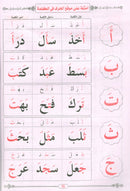 أمثلة على مواقع الحرف في الكلمة
أ أخذ سأل درأ
ب بسط عبد كتب
ت ترك فتح بهت
ث ثلج مثل بحث
ج جعل سجد عرج